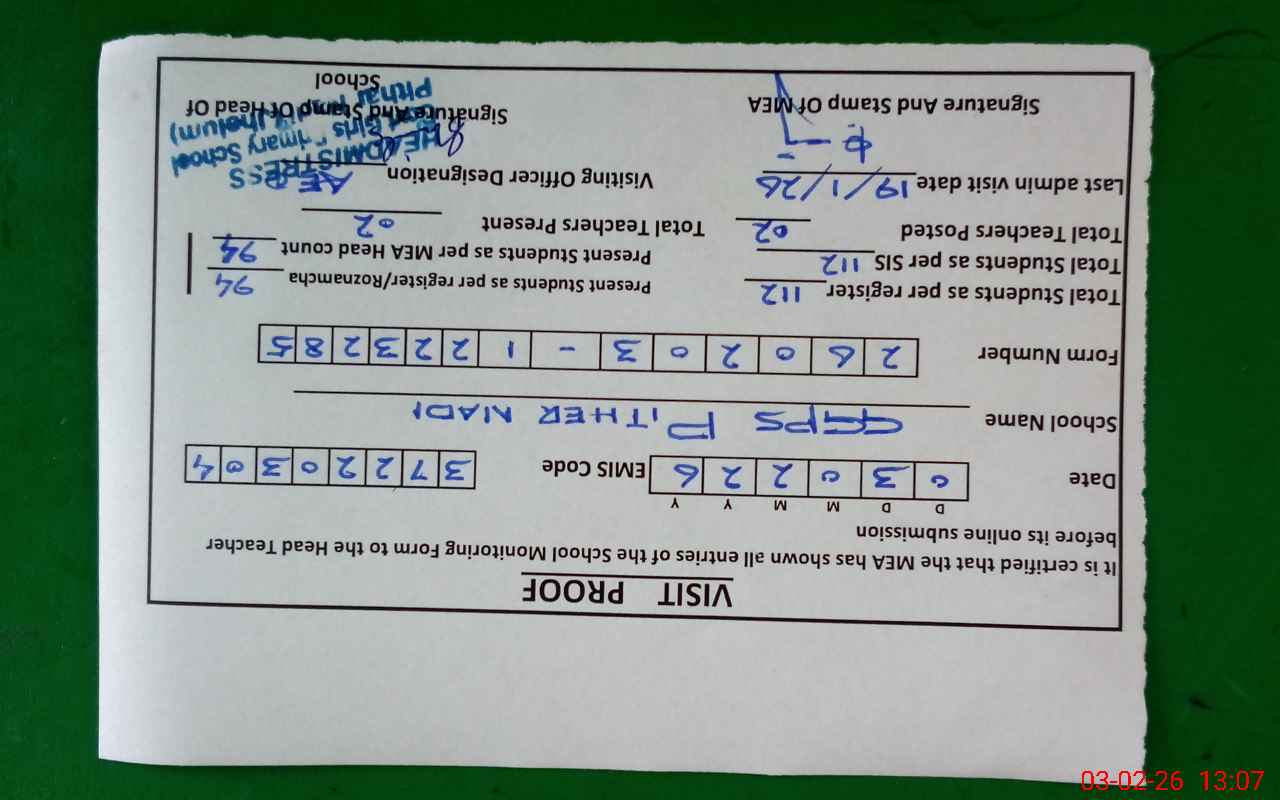 VISIT PROOF
It is certified that the MEA has shown all entries of the School Monitoring Form to the Head Teacher
before its online submission
D D M M Y Y
Date 0 3 0 2 2 6 EMIS Code 3 7 2 2 0 3 0 4
School Name GGPS PITHER NADI
Form Number 2 6 0 2 0 3 - 1 2 2 3 2 8 5
Total Students as per register 112 Present Students as per register/Roznamcha 94
Total Students as per SIS 112 Present Students as per MEA Head count 94
Total Teachers Posted 02 Total Teachers Present 02
Last admin visit date 19/1/26 Visiting Officer Designation AEO
HEADMISTRESS
Girls Primary School
(Jhelum)
Signature And Stamp Of MEA Signature And Stamp Of Head Of
School
03-02-26 13:07